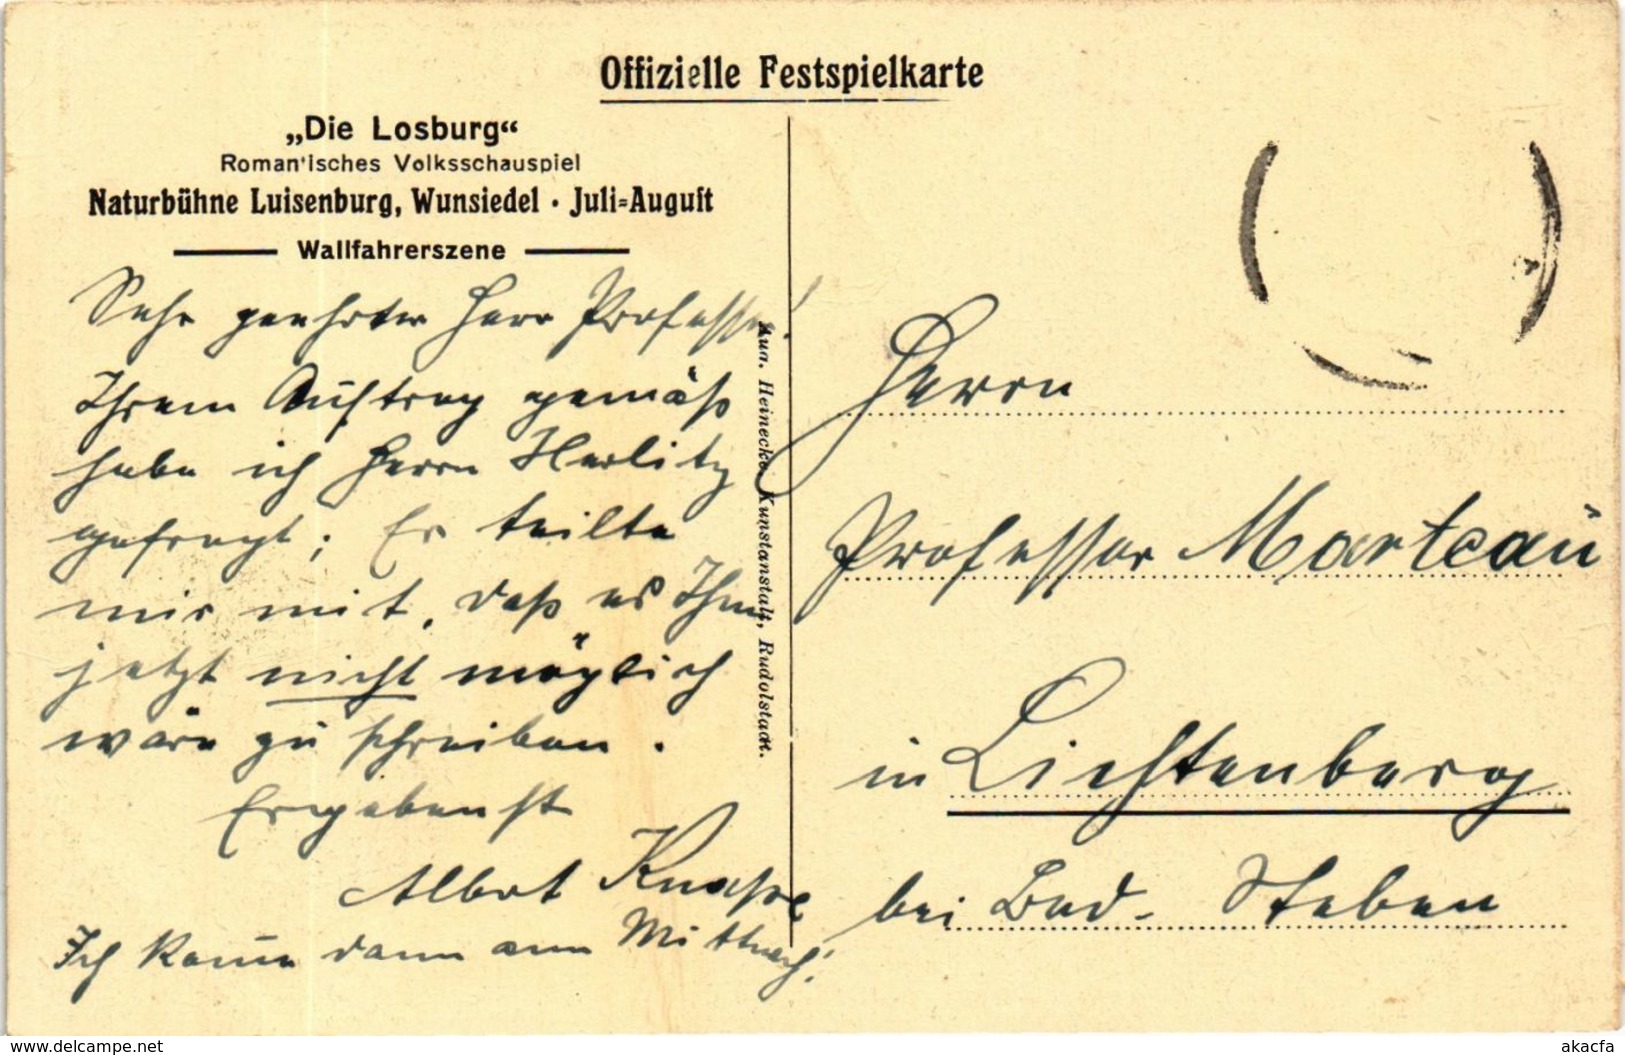 Offizielle Festspielkarte
„Die Losburg“
Romantisches Volksschauspiel
Naturbühne Luisenburg, Wunsiedel · Juli-August
Wallfahrerszene
Sehr geehrter Herr Professor!
Ihrem Auftrag gemäß
habe ich Herrn Herlitz
gefragt; Er teilte
mir mit, daß es Ihm
jetzt nicht möglich
wäre zu schreiben.
Ergebenst
Albert
Ich komme dann am Mittwoch!
Aug. Heinecke Kunstanstalt, Rudolstadt.
Herrn
Professor Marteau
in Lichtenberg
bei Bad-Steben
www.delcampe.net
akacfa